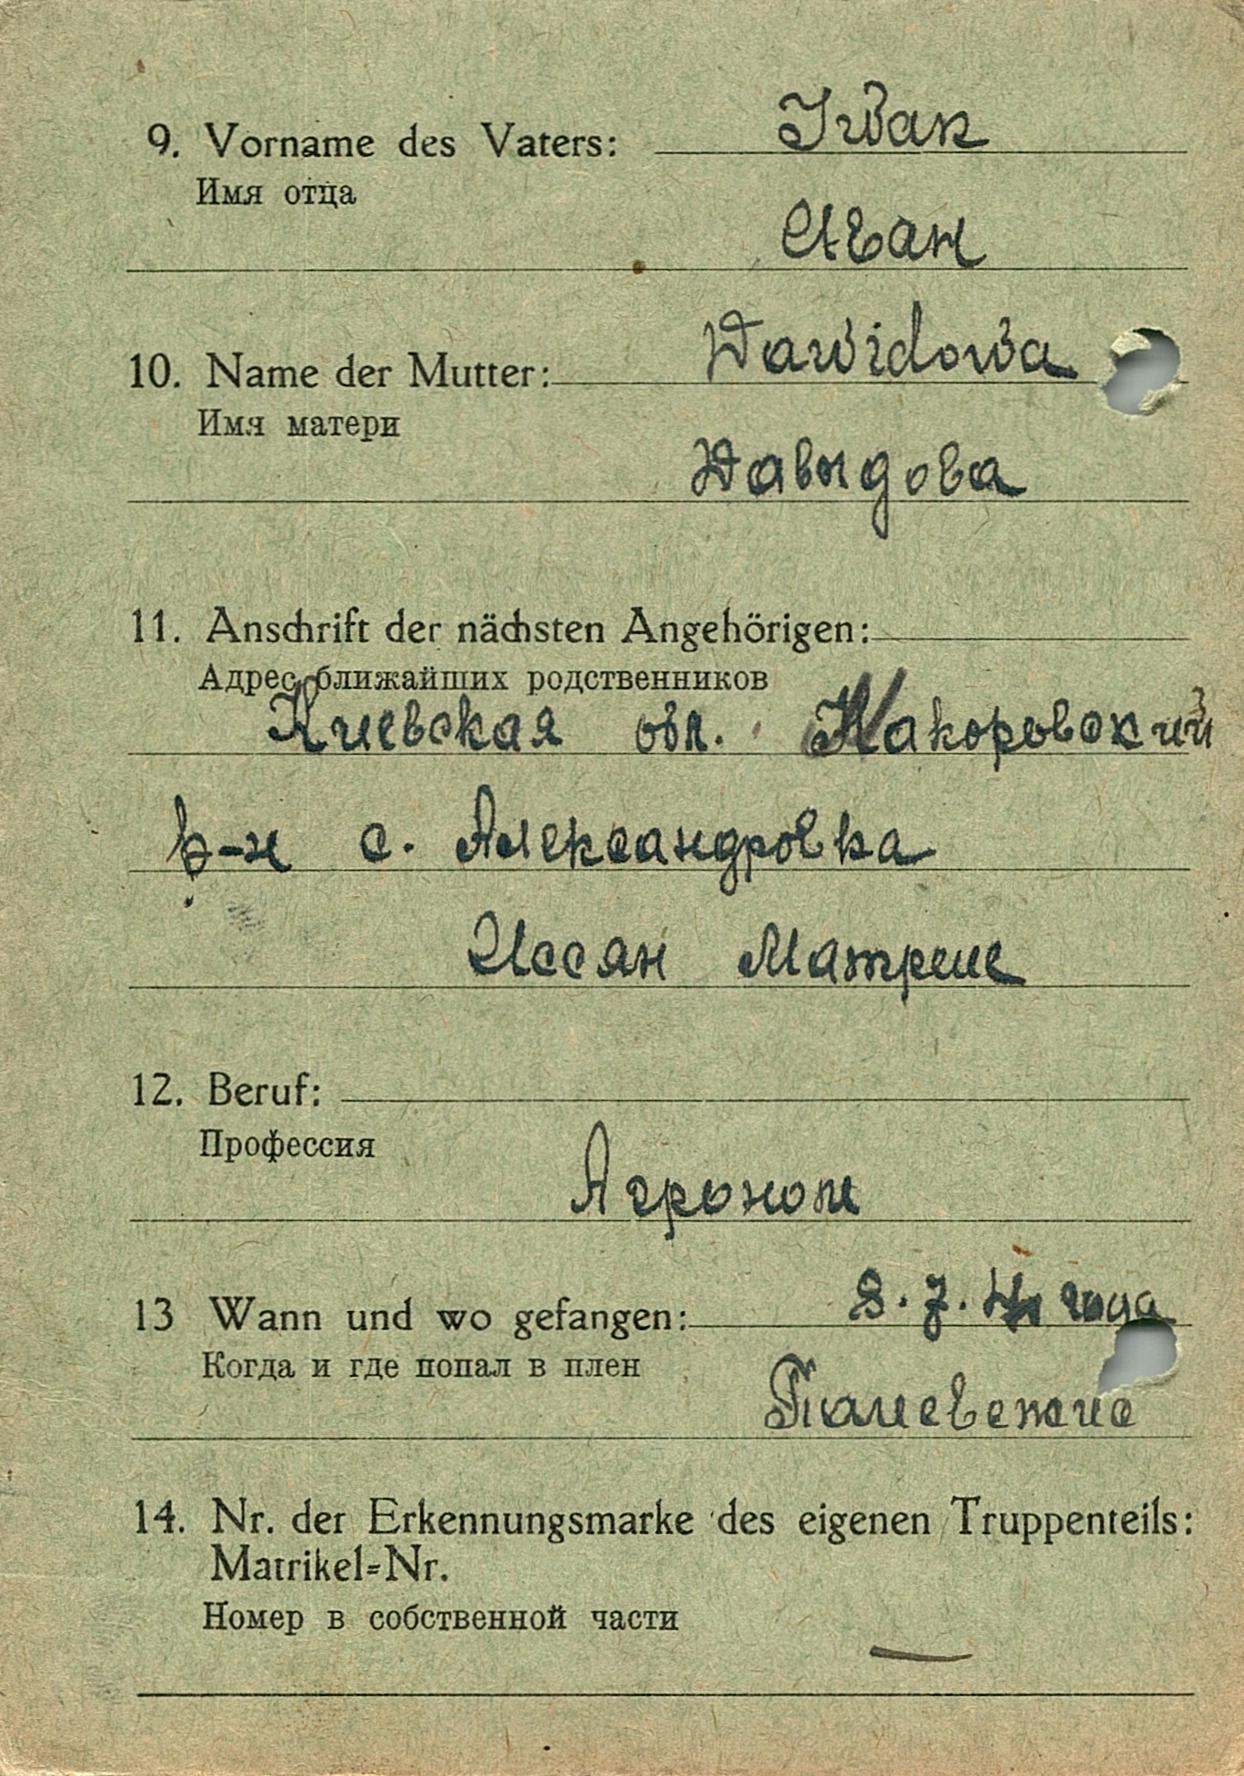 9. Vorname des Vaters: Iwan
Имя отца
Иван
10. Name der Mutter: Dawidowa
Имя матери
Давыдова
11. Anschrift der nächsten Angehörigen:
Адрес ближайших родственников
Киевская обл. Макоровский
р-н с. Александровка
Иссян Матрене
12. Beruf:
Профессия
Агроном
13 Wann und wo gefangen: 8.7.41 года
Когда и где попал в плен
Паневежис
14. Nr. der Erkennungsmarke des eigenen Truppenteils:
Matrikel-Nr.
Номер в собственной части
—